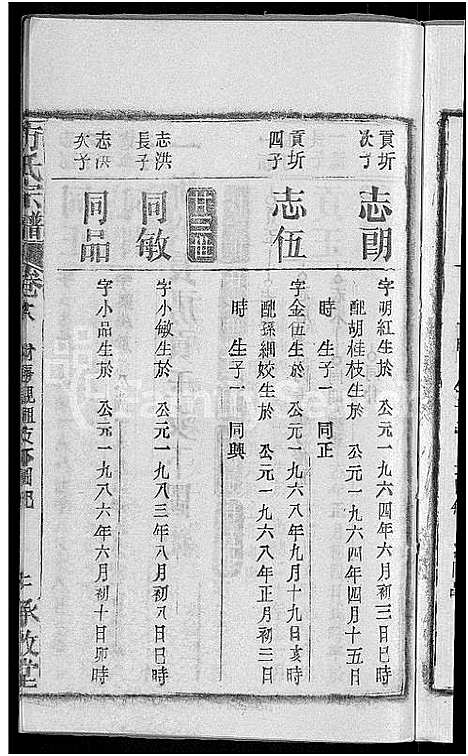 貢圻
次子
志朗
字朗紅生於 公元一九六四年六月初三日巳時
配胡桂枝生於 公元一九六四年四月十五日
時 生子一 同正
貢圻
四子
志伍
字金伍生於 公元一九六八年九月十九日亥時
配孫細姣生於 公元一九六八年正月初三日
時 生子一 同興
志洪
長子
同敏
字小敏生於 公元一九八三年八月初八日巳時
志洪
次子
同品
字小品生於 公元一九八六年六月初十日卯時
方氏宗譜
承啟堂